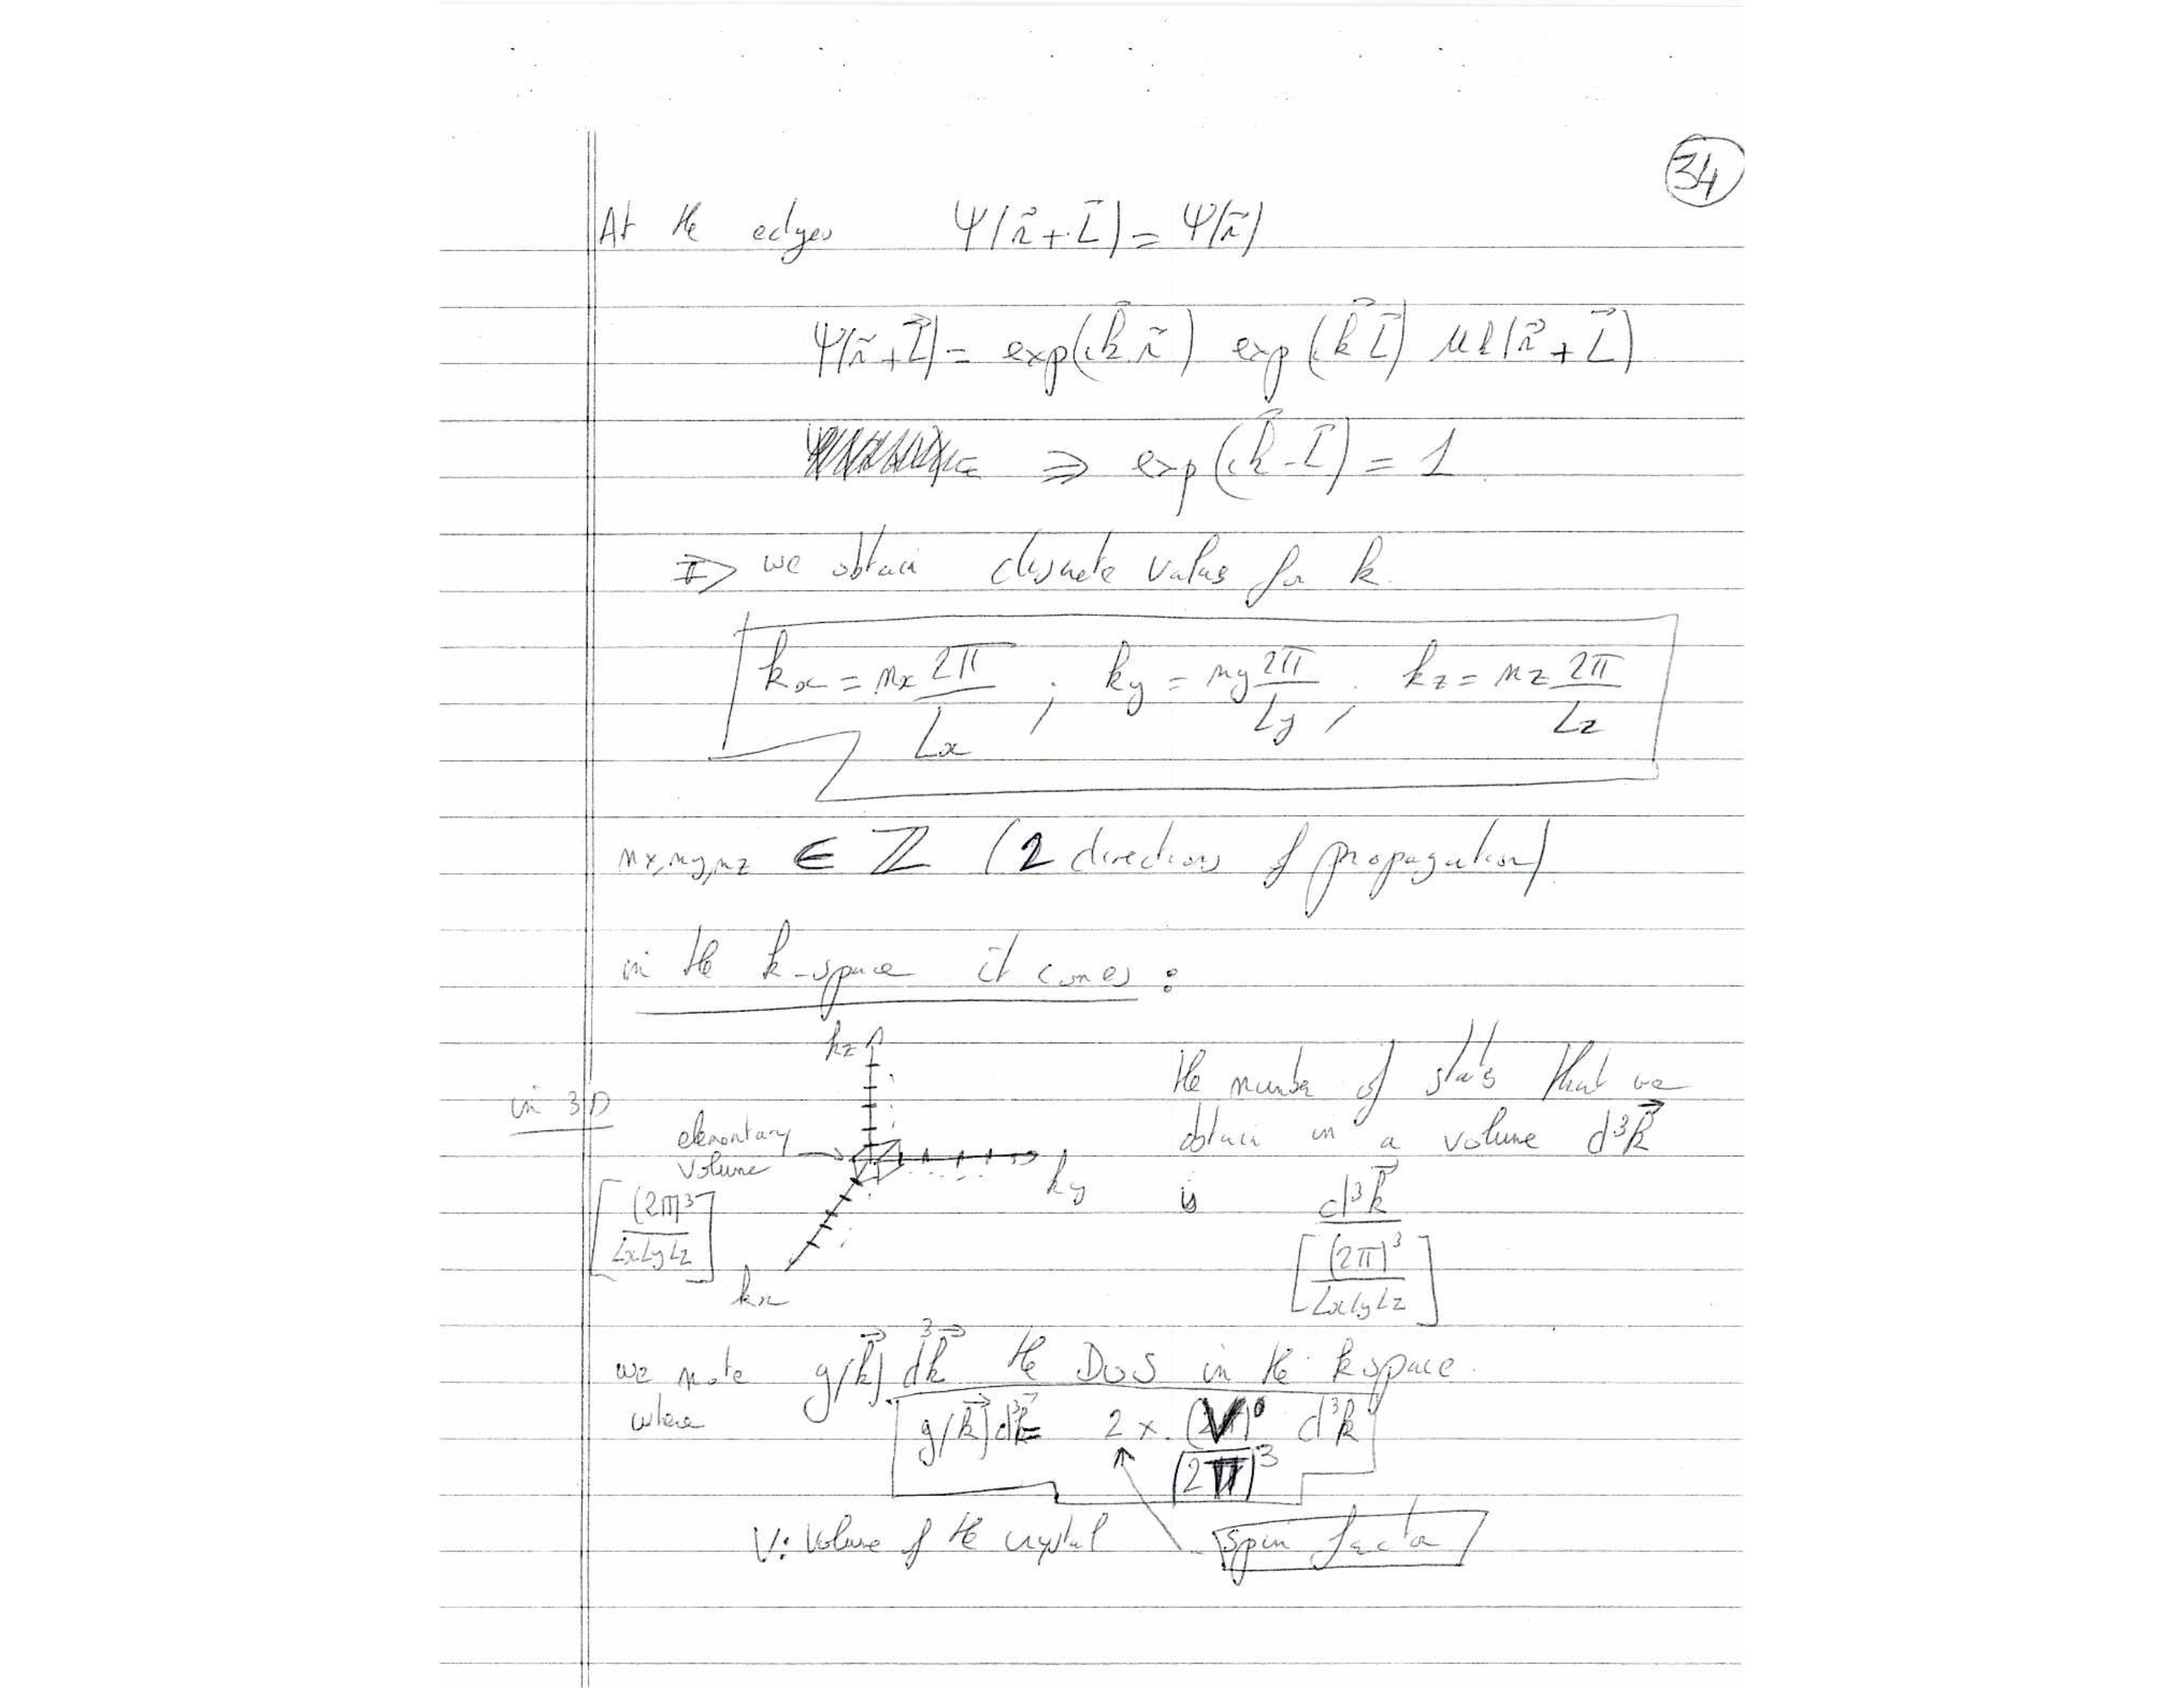 34
At the edges Ψ(r⃗+L⃗) = Ψ(r⃗)
Ψ(r⃗+L⃗) = exp(i k⃗.r⃗) exp(i k⃗ L⃗) uk(r⃗+L⃗)
⇒ exp(i k⃗.L⃗) = 1
⇒ we obtain discrete values for k.
kx = nx 2π/Lx ; ky = ny 2π/Ly ; kz = nz 2π/Lz
nx, ny, nz ∈ ℤ (2 directions of propagation)
in the k-space it comes :
in 3D
kz
elementary
volume
[(2π)³/LxLyLz]
ky
kx
the number of states that we
obtain in a volume d³k⃗
is d³k⃗/[(2π)³/LxLyLz]
we note g(k⃗) d³k⃗ the DOS in the k space.
where g(k⃗) d³k⃗ = 2 x V/(2π)³ d³k
V: Volume of the crystal spin factor